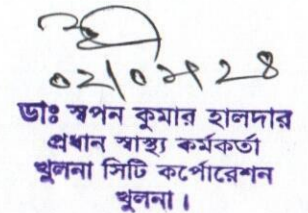 ০২/০৮/২৪
ডাঃ স্বপন কুমার হালদার
প্রধান স্বাস্থ্য কর্মকর্তা
খুলনা সিটি কর্পোরেশন
খুলনা।